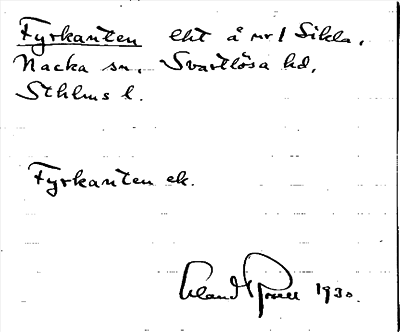 Fyrkanten lht å nr 1 Sikla,
Nacka sn. Svartlösa hd,
Sthlms l.
Fyrkanten ek.
1930.